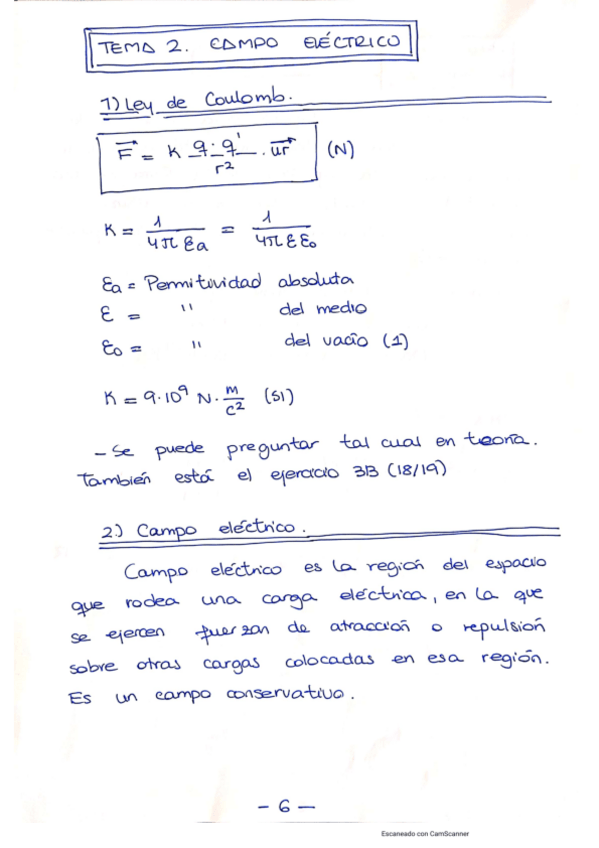 TEMA 2. CAMPO ELÉCTRICO
1) Ley de Coulomb.
F⃗ = K q·q' / r² · ur⃗ (N)
K = 1 / 4π εa = 1 / 4π ε ε0
εa = Permitividad absoluta
ε = " del medio
ε0 = " del vacío (1)
K = 9·10⁹ N· m / c² (SI)
- Se puede preguntar tal cual en teoría.
También está el ejercicio 3B (18/19)
2.) Campo eléctrico.
Campo eléctrico es la región del espacio
que rodea una carga eléctrica, en la que
se ejercen fuerzan de atracción o repulsión
sobre otras cargas colocadas en esa región.
Es un campo conservativo.
- 6 -
Escaneado con CamScanner